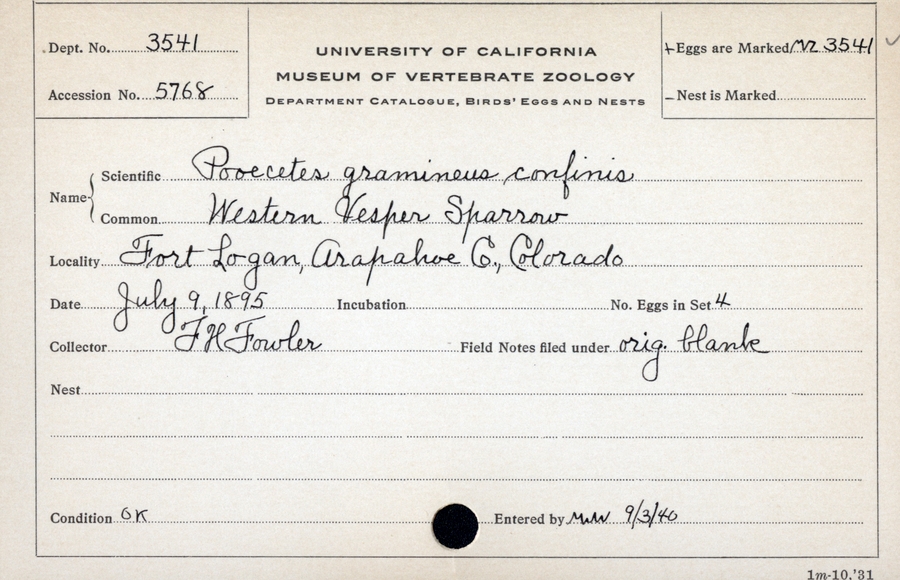 Dept. No. 3541
UNIVERSITY OF CALIFORNIA
MUSEUM OF VERTEBRATE ZOOLOGY
DEPARTMENT CATALOGUE, BIRDS' EGGS AND NESTS
Eggs are Marked 3541
Accession No. 5768
Nest is Marked
Name
Scientific Pooecetes gramineus confinis
Common Western Vesper Sparrow
Locality Fort Logan, Arapahoe Co., Colorado
Date July 9, 1895 Incubation No. Eggs in Set 4
Collector F H Fowler Field Notes filed under orig. blank
Nest
Condition OK Entered by 9/3/40
1m-10,'31